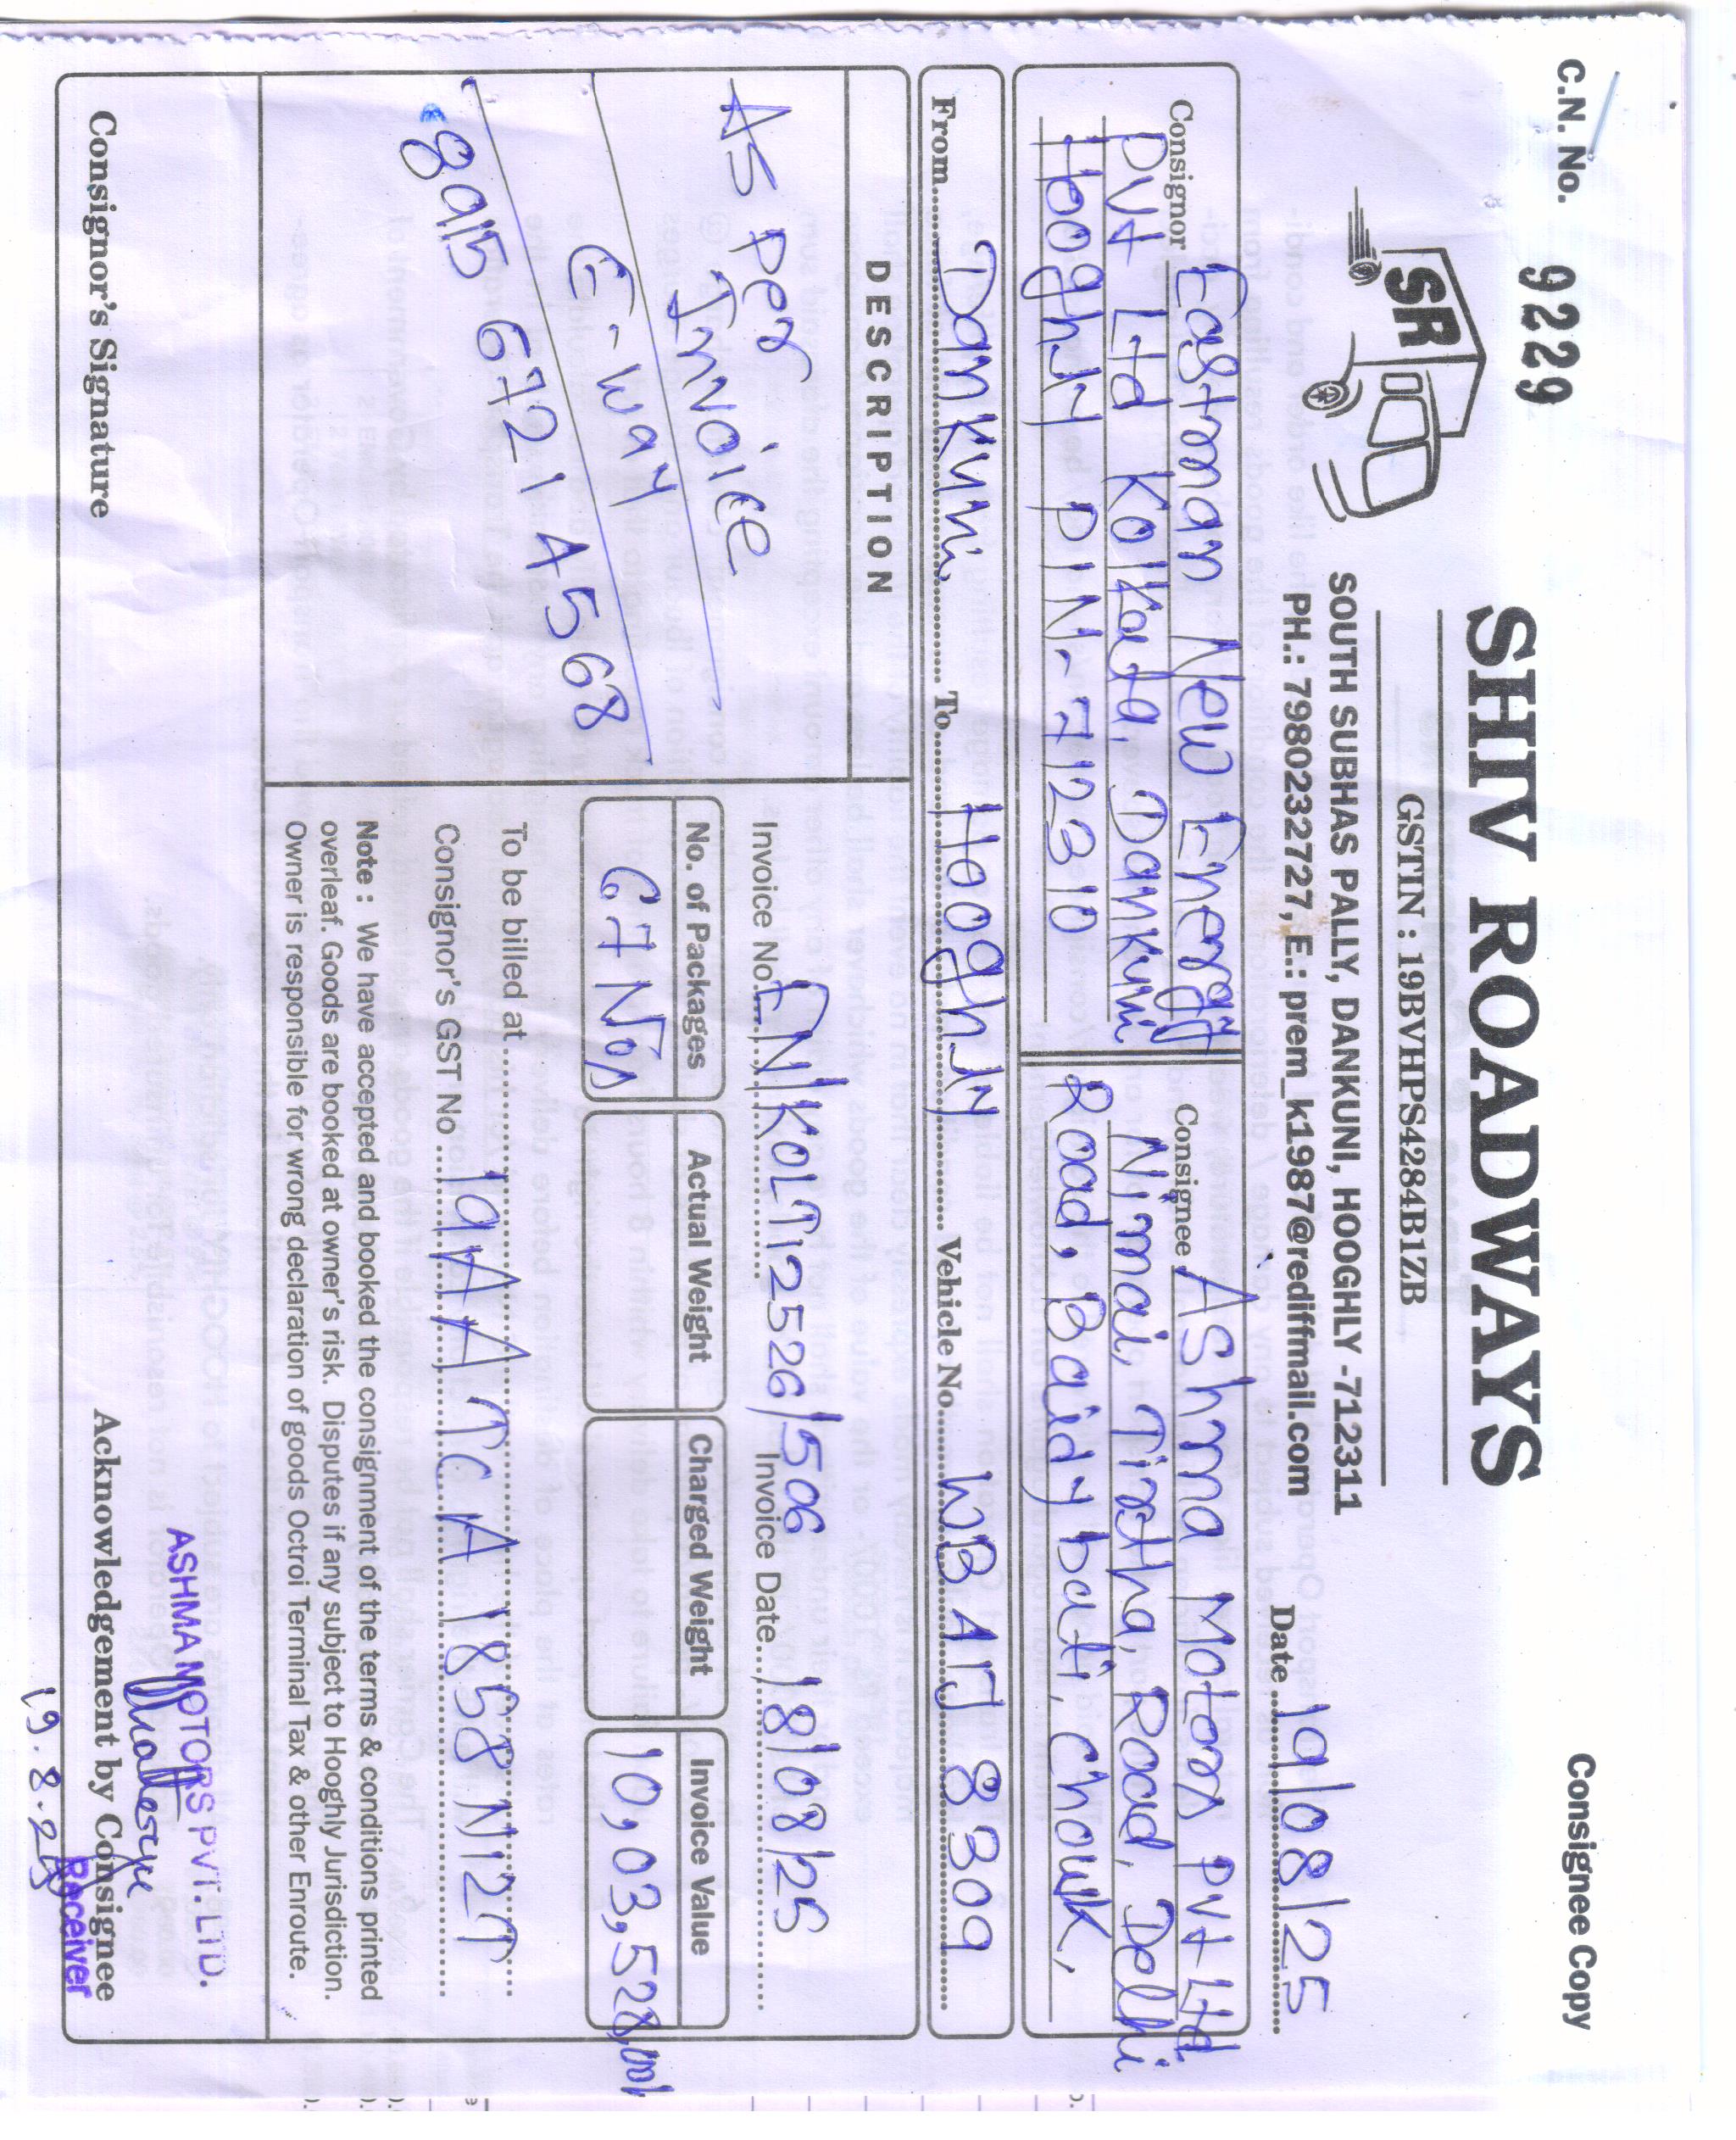 C.N. No. 9229
Consignee Copy
SR
SHIV ROADWAYS
GSTIN : 19BVHPS4284B1ZB
SOUTH SUBHAS PALLY, DANKUNI, HOOGHLY -712311
PH.: 7980232727, E.: prem_k1987@rediffmail.com
Date 19/08/25
Consignor Eastman New Energy
Pvt Ltd Kolkata, Dankuni
Hooghly PIN-712310
Consignee Ashma Motors Pvt Ltd
Nimai, Tirtha, Road, Delhi
Road, Baidybati, Chowk,
From Dankuni, To Hooghly Vehicle No. WB 15 8309
DESCRIPTION
As Per
Invoice
E-way
8915 6721 4568
Invoice No. EN/KOLT12526/506 Invoice Date 18/08/25
No. of Packages Actual Weight Charged Weight Invoice Value
67 Nos 10,03,528,00/-
To be billed at
Consignor's GST No 19AAATCA1858N1ZT
Note : We have accepted and booked the consignment of the terms & conditions printed
overleaf. Goods are booked at owner's risk. Disputes if any subject to Hooghly Jurisdiction.
Owner is responsible for wrong declaration of goods Octroi Terminal Tax & other Enroute.
ASHMA MOTORS PVT. LTD.
Consignor's Signature
Acknowledgement by Consignee
Receiver
19.8.25